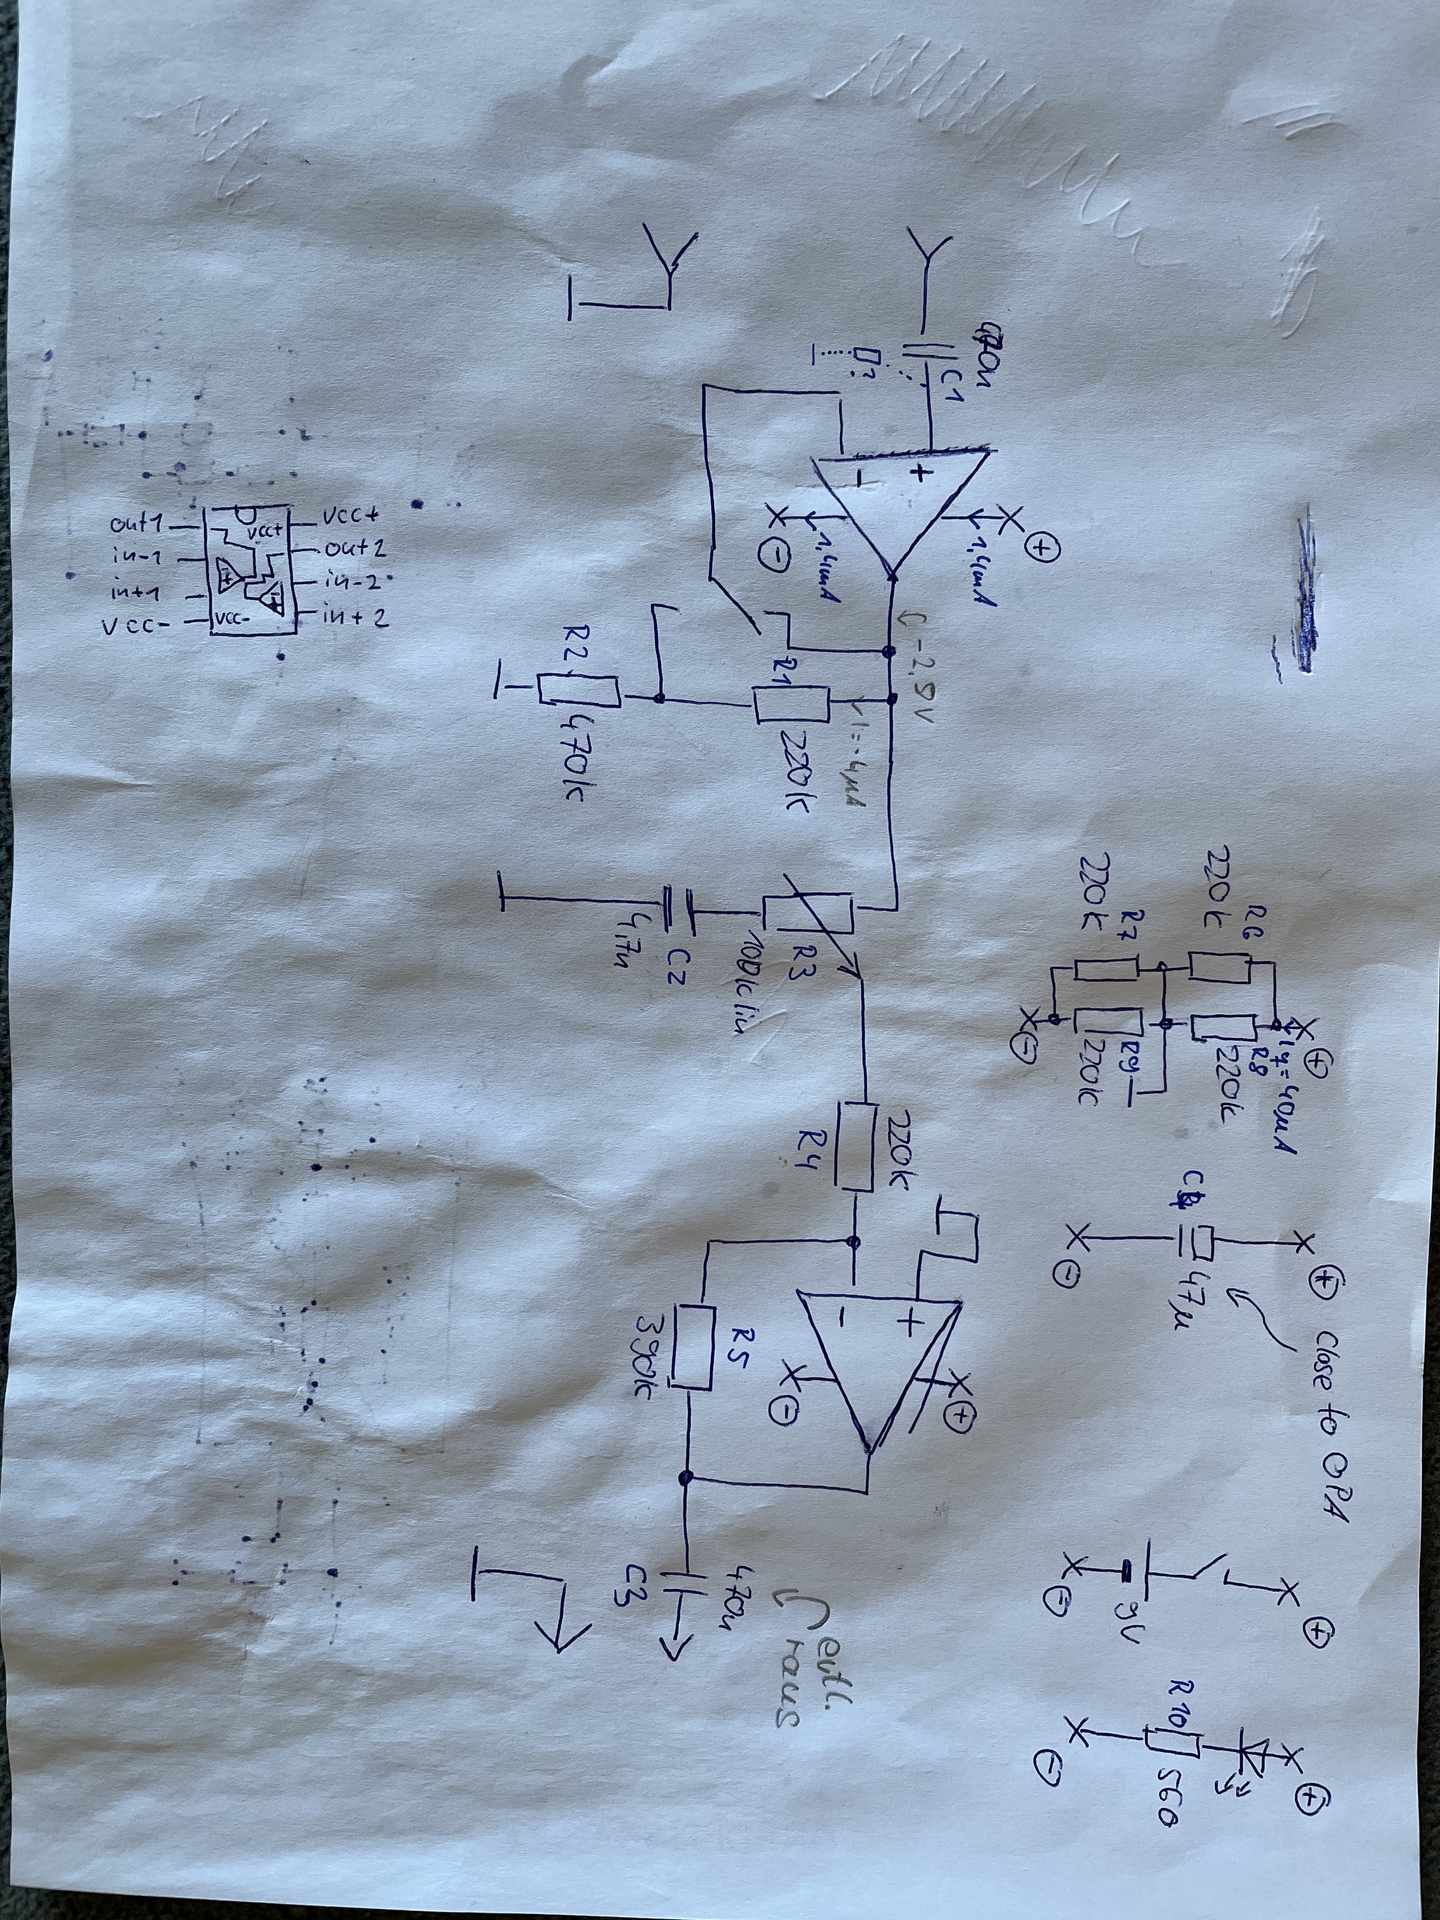 470n
C1
?
+
-
⊕
1,4mA
⊖
1,4mA
-2,8V
R1
220k
I=-4µA
R2
470k
R3
100k lin
C2
4,7n
R4
220k
+
-
⊕
⊖
R5
390k
C3
470n
evtl.
raus
R6
220k
R7
220k
R8
220k
R9
220k
⊕
⊖
=40µA
C4
47µ
⊕
⊖
close to OPA
9V
⊕
⊖
R10
560
⊕
⊖
out1
in-1
in+1
VCC-
VCC+
out2
in-2
in+2
VCC+
VCC-